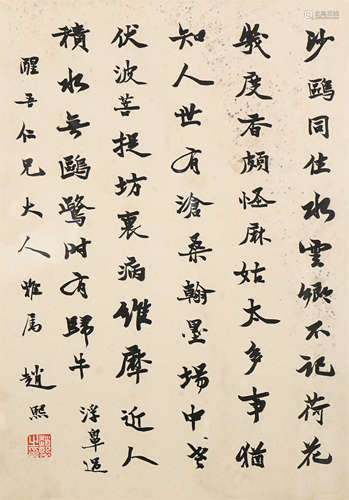 沙鷗同住水雲鄉不記荷花
幾度香頗怪麻姑太多事猶
知人世有滄桑翰墨場中老
伏波菩提坊裏病維摩近人
積水無鷗鷺時有歸牛浮鼻過
醒吾仁兄大人雅屬 趙熙